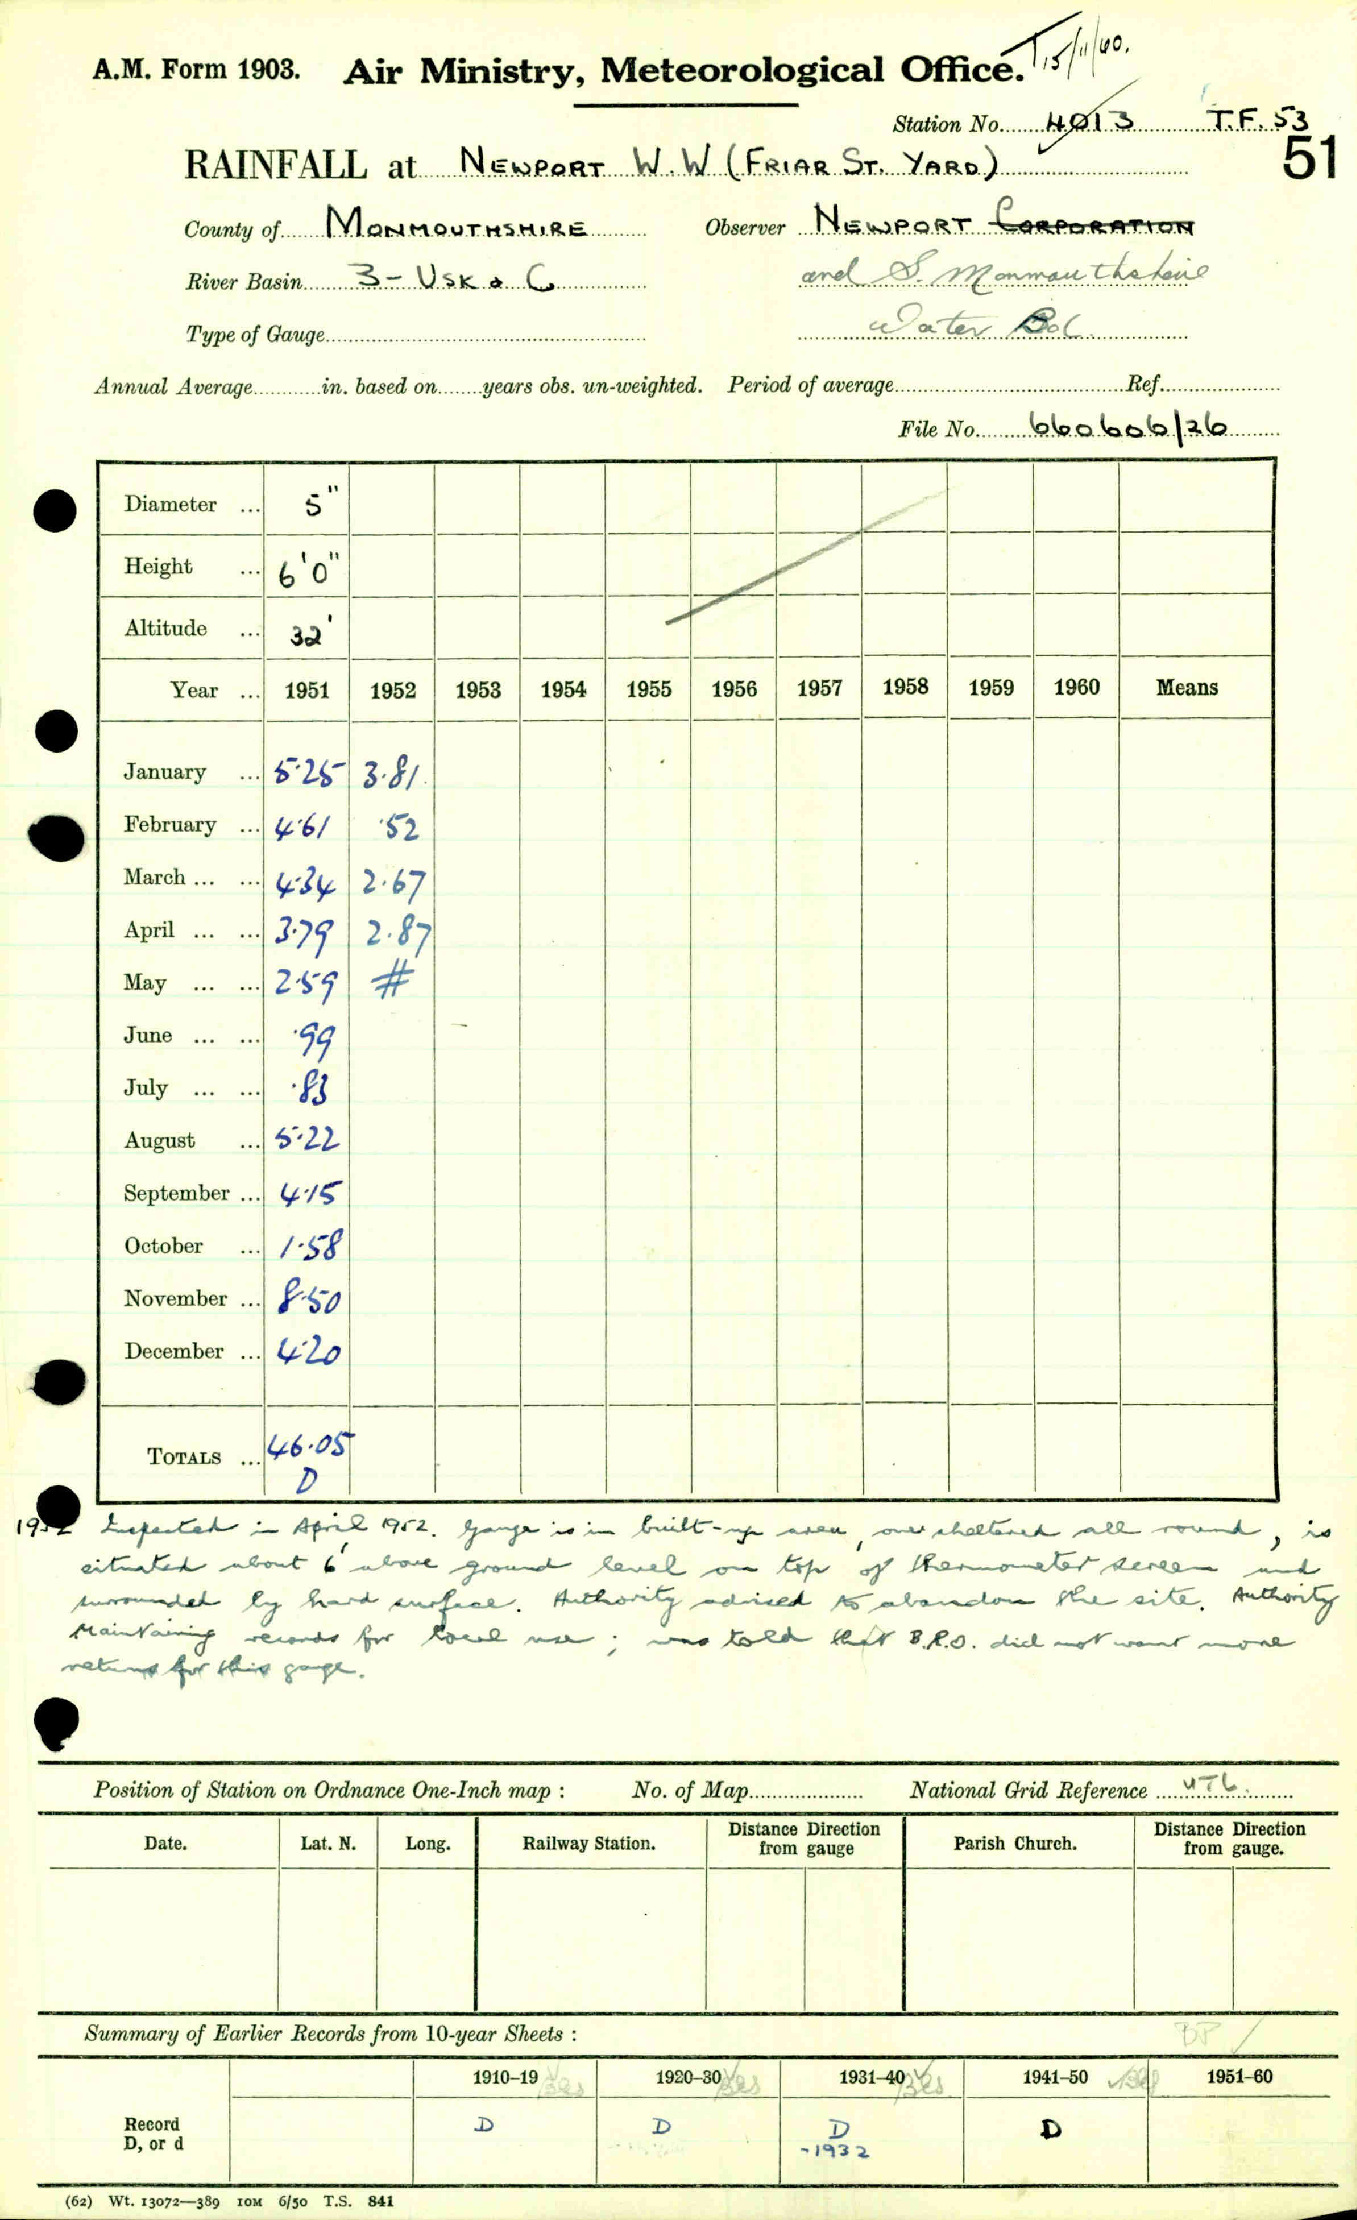 T 15/11/60.
A.M. Form 1903. Air Ministry, Meteorological Office.
Station No. 4013 T.F. 53
51
RAINFALL at NEWPORT W.W (FRIAR ST. YARD)
County of MONMOUTHSHIRE Observer NEWPORT CORPORATION
River Basin 3 - USK & C and S. Monmouthshire
Type of Gauge Water Bd.
Annual Average in. based on years obs. un-weighted. Period of average Ref.
File No. 660606/26
Diameter ... 5"
Height ... 6'0"
Altitude ... 32'
Year ... 1951 1952 1953 1954 1955 1956 1957 1958 1959 1960 Means
January ... 5.25 3.81
February ... 4.61 .52
March ... ... 4.34 2.67
April ... ... 3.79 2.87
May ... ... 2.59 #
June ... ... .99
July ... ... .83
August ... 5.22
September ... 4.15
October ... 1.58
November ... 8.50
December ... 4.20
TOTALS ... 46.05
D
1952 Inspected in April 1952. Gauge is in built-up area, over sheltered all round, is
situated about 6' above ground level on top of thermometer screen and
surrounded by hard surface. Authority advised to abandon the site. Authority
maintaining records for local use; was told that B.R.O. did not want more
returns for this gauge.
Position of Station on Ordnance One-Inch map : No. of Map National Grid Reference
Date. Lat. N. Long. Railway Station. Distance from gauge Direction Parish Church. Distance from gauge. Direction
Summary of Earlier Records from 10-year Sheets : BP
1910–19 Yes 1920–30 Yes 1931–40 Yes 1941–50 Yes 1951–60
Record D, or d D D D -1932 D
(62) Wt. 13072—389 10M 6/50 T.S. 841